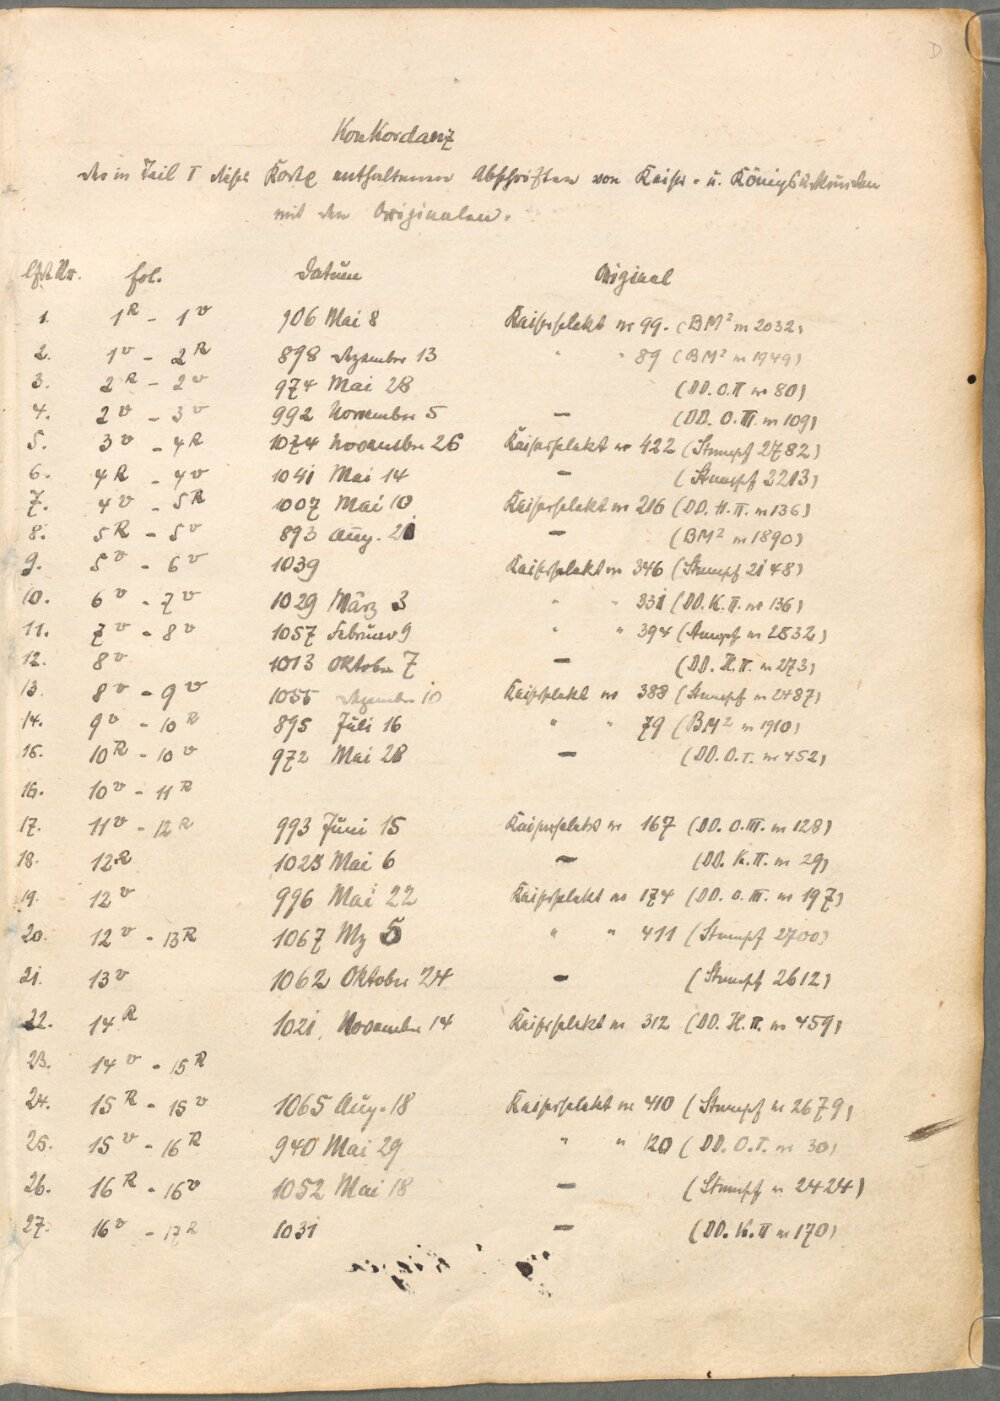 D
Konkordanz
der in Teil I dieses Kodex enthaltenen Abschriften von Kaiser- u. Königsurkunden
mit den Originalen.
lfde Nr. fol. Datum Original
1. 1R - 1v 906 Mai 8 Kaiserselekt nr 99. (BM² nr 2032)
2. 1v - 2R 898 Dezember 13 " " 89 (BM² nr 1949)
3. 2R - 2v 974 Mai 28 (DD. O.II nr 80)
4. 2v - 3v 992 November 5 — (DD. O.III. nr 109)
5. 3v - 4R 1074 November 26 Kaiserselekt nr 422 (Stumpf 2782)
6. 4R - 4v 1041 Mai 14 — (Stumpf 2213)
7. 4v - 5R 1007 Mai 10 Kaiserselekt nr 216 (DD. H.II. nr 136)
8. 5R - 5v 893 Aug. 21 — (BM² nr 1890)
9. 5v - 6v 1039 Kaiserselekt nr 346 (Stumpf 2148)
10. 6v - 7v 1029 März 3 " " 331 (DD. K.II. nr 136)
11. 7v - 8v 1057 Februar 9 " " 394 (Stumpf nr 2532)
12. 8v 1013 Oktober 7 — (DD. H.II. nr 273)
13. 8v - 9v 1055 Dezember 10 Kaiserselekt nr 388 (Stumpf nr 2487)
14. 9v - 10R 895 Juli 16 " " 79 (BM² nr 1910)
15. 10R - 10v 972 Mai 28 — (DD. O.I. nr 452)
16. 10v - 11R
17. 11v - 12R 993 Juni 15 Kaiserselekt nr 167 (DD. O.III. nr 128)
18. 12R 1025 Mai 6 — (DD. K.II. nr 29)
19. 12v 996 Mai 22 Kaiserselekt nr 174 (DD. O.III. nr 197)
20. 12v - 13R 1067 Mz 5 " " 411 (Stumpf 2700)
21. 13v 1062 Oktober 24 — (Stumpf 2612)
22. 14R 1021 November 14 Kaiserselekt nr 312 (DD. H.II. nr 459)
23. 14v - 15R
24. 15R - 15v 1065 Aug. 18 Kaiserselekt nr 410 (Stumpf nr 2679)
25. 15v - 16R 940 Mai 29 " " 120 (DD. O.I. nr 30)
26. 16R - 16v 1052 Mai 18 — (Stumpf nr 2424)
27. 16v - 17R 1031 — (DD. K.II nr 170)